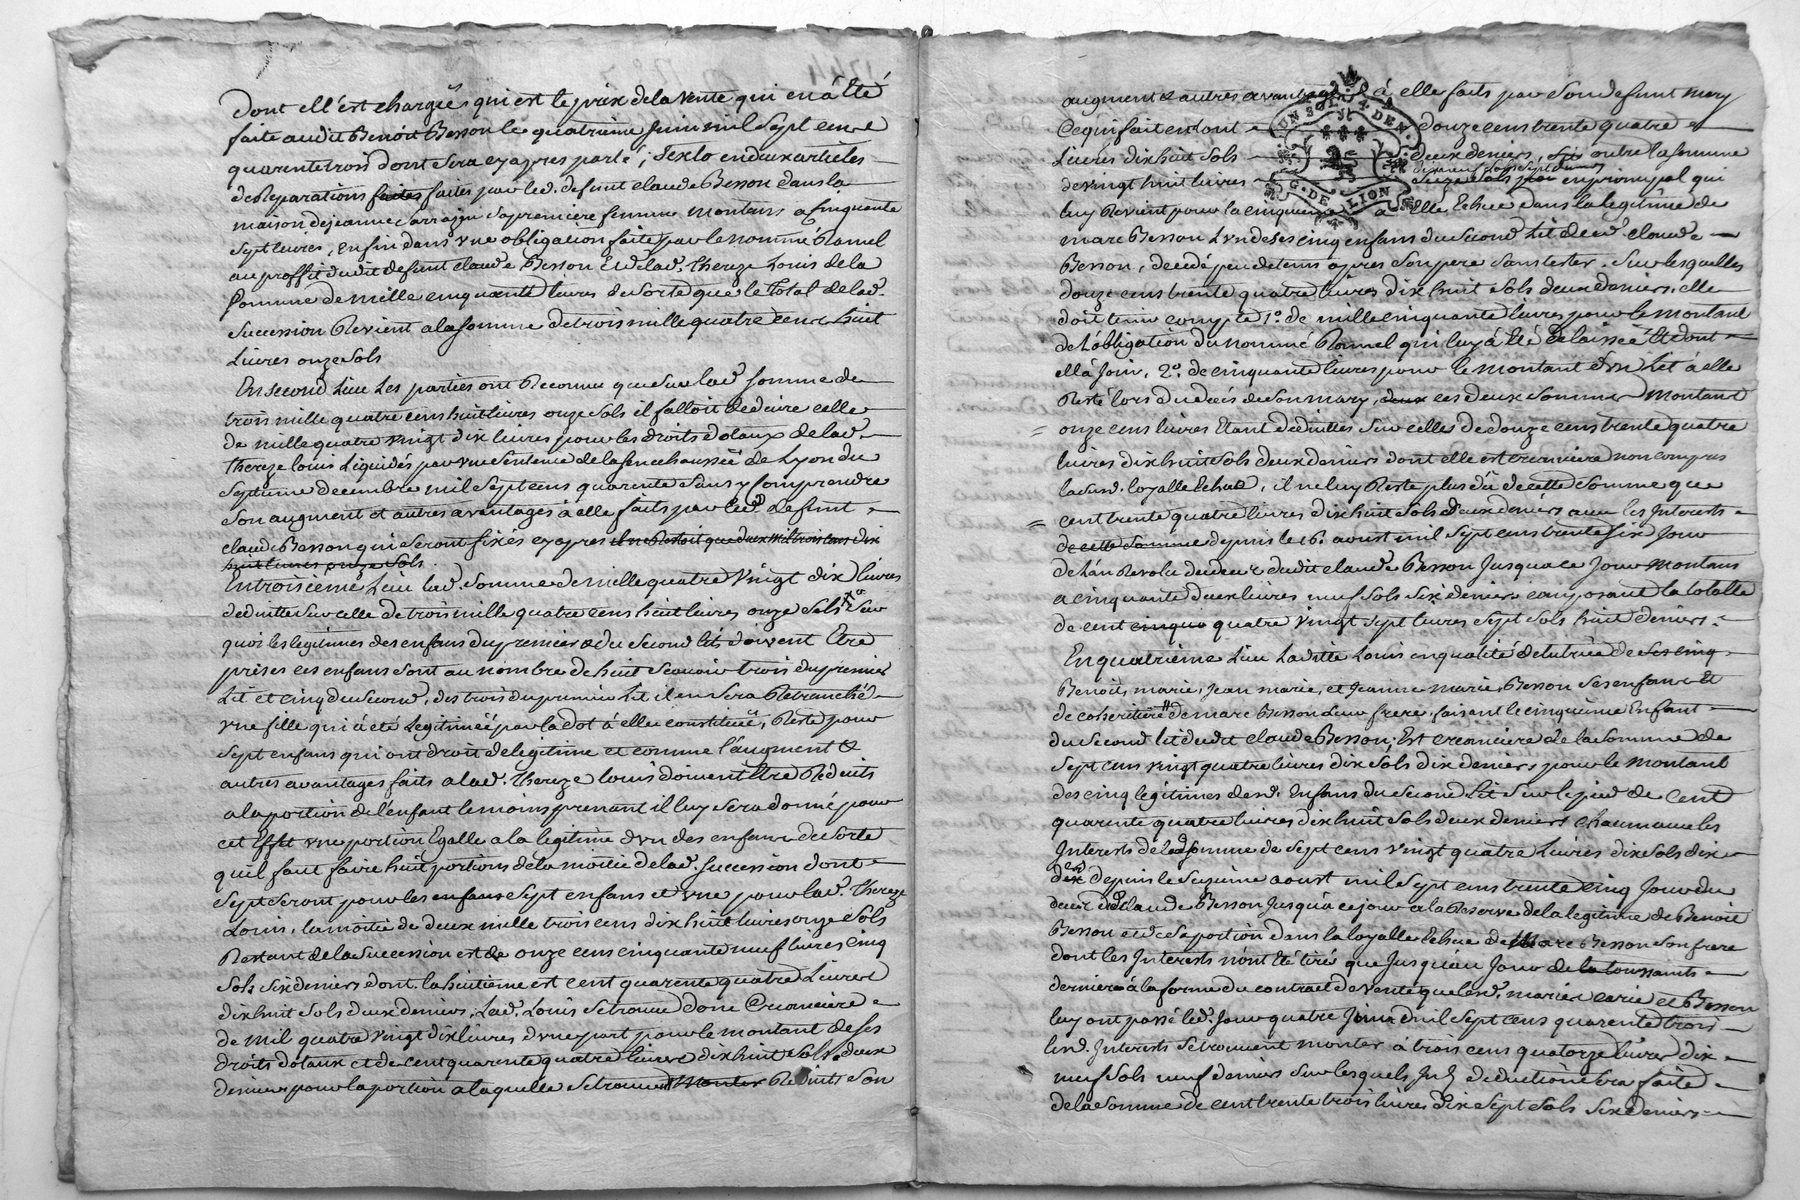 dont ell'est chargée qui est le prix de la vente qui en á été
faite audit Benoit Besson le quatrieme Juin mil sept cent
quarente trois dont sera cy apres parlé ; Sexto en deux articles
de Reparations faites faites par led. defunt claude Besson dans la
maison de jeanne carrage sa premiere femme montans a cinquante
sept livres, enfin dans vne obligation faite par le nommé Ramel
au proffit dudit defunt claude Besson Et de lad. thereze Louis de la
somme de mille cinquante livres de sorte que le total de lad.
succession Revient a la somme de trois mille quatre cent huit
Livres onze sols
En second Lieu Les parties ont Reconnu que sur lad. somme de
trois mille quatre cens huit livres onze sols il falloit deduire celle
de mille quatre vingt dix livres pour les droits dotaux de lad.
thereze louis Liquidés par vne sentence de la senechaussée de Lyon du
septieme decembre mil sept cens quarente sans y comprendre
son augment et autres avantages à elle faits par led. defunt
claude Besson qui seront fixés cy apres il ne Restoit que deux mil trois cens dix
huit livres onze sols.
En troisieme Lieu lad. somme de mille quatre vingt dix livres
deduitte sur celle de trois mille quatre cens huit livres onze sols sur
quoi les legitimes des enfans du premier & du second lits doivent Etre
prises ces enfans sont au nombre de huit scauoir trois du premier
Lit et cinq du second, des trois du premier Lit il en sera Retranché
vne fille qui à eté Legitimée par la dot à elle constituée, Reste pour
sept enfans qui ont droit de legitime et comme l'augment &
autres avantages faits a lad. thereze louis doivent Etre Reduits
a la portion de l'enfant le moins prenant il luy sera donné pour
cet Effet vne portion Egalle a la legitime d'vn des enfans de sorte
qu'il faut faire huit portions de la moitié de lad. succession dont
sept seront pour les enfans sept enfans et vne pour lad. thereze
Louis, la moitié de deux mille trois cens dix huit livres onze sols
Restant de la succession est de onze cens cinquante neuf livres cinq
sols six deniers dont la huitieme est cent quarente quatre Livres
dix huit sols deux deniers, Lad. Louis se trouve donc Creanciere
de mil quatre vingt dix livres d'vne part pour le montant de ses
droits dotaux et de cent quarente quatre livres dix huit sols deux
deniers pour la portion a laquelle se trouvent monter Reduits son
augment & autres avantages à elle faits par son defunt mary
Ce qui fait en tout douze cens trente quatre
Livres dix huit sols deux deniers, outre la somme
de vingt huit livres dix neuf sols sept deniers en principal qui
luy Revient pour la cinquieme à elle Echue dans la legitime de
marc Besson L'vn de ses cinq enfans du second Lit de led. claude
Besson, decedé peu de tems apres son pere sans tester. sur lesquelles
douze cens trente quatre livres dix huit sols deux deniers, elle
doit tenir compte 1o. de mille cinquante livres pour le montant
de l'obligation du nommé Ramel qui luy á Eté delaissée Et dont
ell'à Joui, 2o. de cinquante livres pour le montant d'vn Lit à elle
Resté lors du decés de son mary, deux ces deux sommes montant
onze cens livres Etant deduittes sur celle de douze cens trente quatre
livres dix huit sols deux deniers dont elle est creanciere non compris
lad. loyalle Echue, il ne luy Reste plus dû de cette somme que
cent trente quatre livres dix huit sols deux deniers avec les Interests
de cette somme depuis le 16. aoust mil sept cens trente six Jour
de l'an Revolu du deces dudit claude Besson Jusqu'a ce Jour montans
a cinquante deux livres neuf sols six deniers composant la totalle
de cent cinquo quatre vingt sept livres sept sols huit deniers.
En quatrieme Lieu Laditte Louis en qualité de tutrice de ses cinq
Benoit, marie, Jean marie, et Jeanne marie Besson ses enfans Et
de coheritiere de marc Besson leur frere, faisant le cinquieme Enfant
du second lit dudit claude Besson, Est creanciere de la somme de
sept cens vingt quatre livres dix sols dix deniers pour le montant
des cinq legitimes desd. Enfans du second Lit sur le pied de cent
quarente quatre livres dix huit sols deux deniers chacun avec les
Interests de lad. somme de sept cens vingt quatre Livres dix sols dix
dix depuis le seizieme aoust mil sept cens trente cinq Jour du
deces dud. claude Besson Jusqu'à ce jour a la Reserve de la legitime de Benoit
Besson et de sa portion dans la loyalle Echue de Marc Besson son frere
dont les Interests n'ont Eté tirés que Jusqu'au Jour de la toussaints
derniere à la forme du contract de vente que lesd. mariés carie et Besson
luy ont passé led. Jour quatre Juin mil sept cens quarente trois
lesd. Interests se trouvent monter à trois cens quatorze livres dix
neuf sols neuf deniers sur lesquels deduction sera faite
de la somme de cent trente trois livres dix sept sols six deniers
UN SOL 4 DEN.
G. DE LION